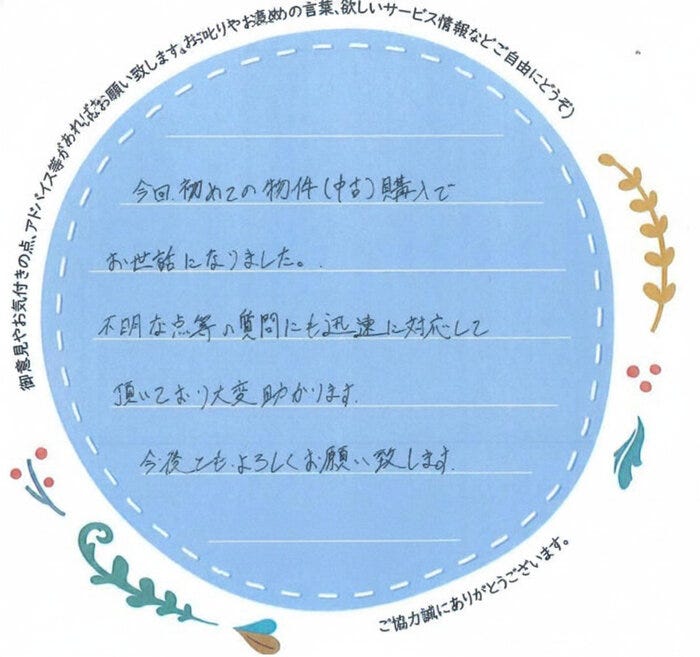 御意見やお気付きの点、アドバイス等があればお願い致します。お叱りやお褒めの言葉、欲しいサービス情報などご自由にどうぞ)
今回、初めての物件(中古)購入で
お世話になりました。
不明な点等の質問にも迅速に対応して
頂いており大変助かります。
今後とも、よろしくお願い致します。
ご協力誠にありがとうございます。